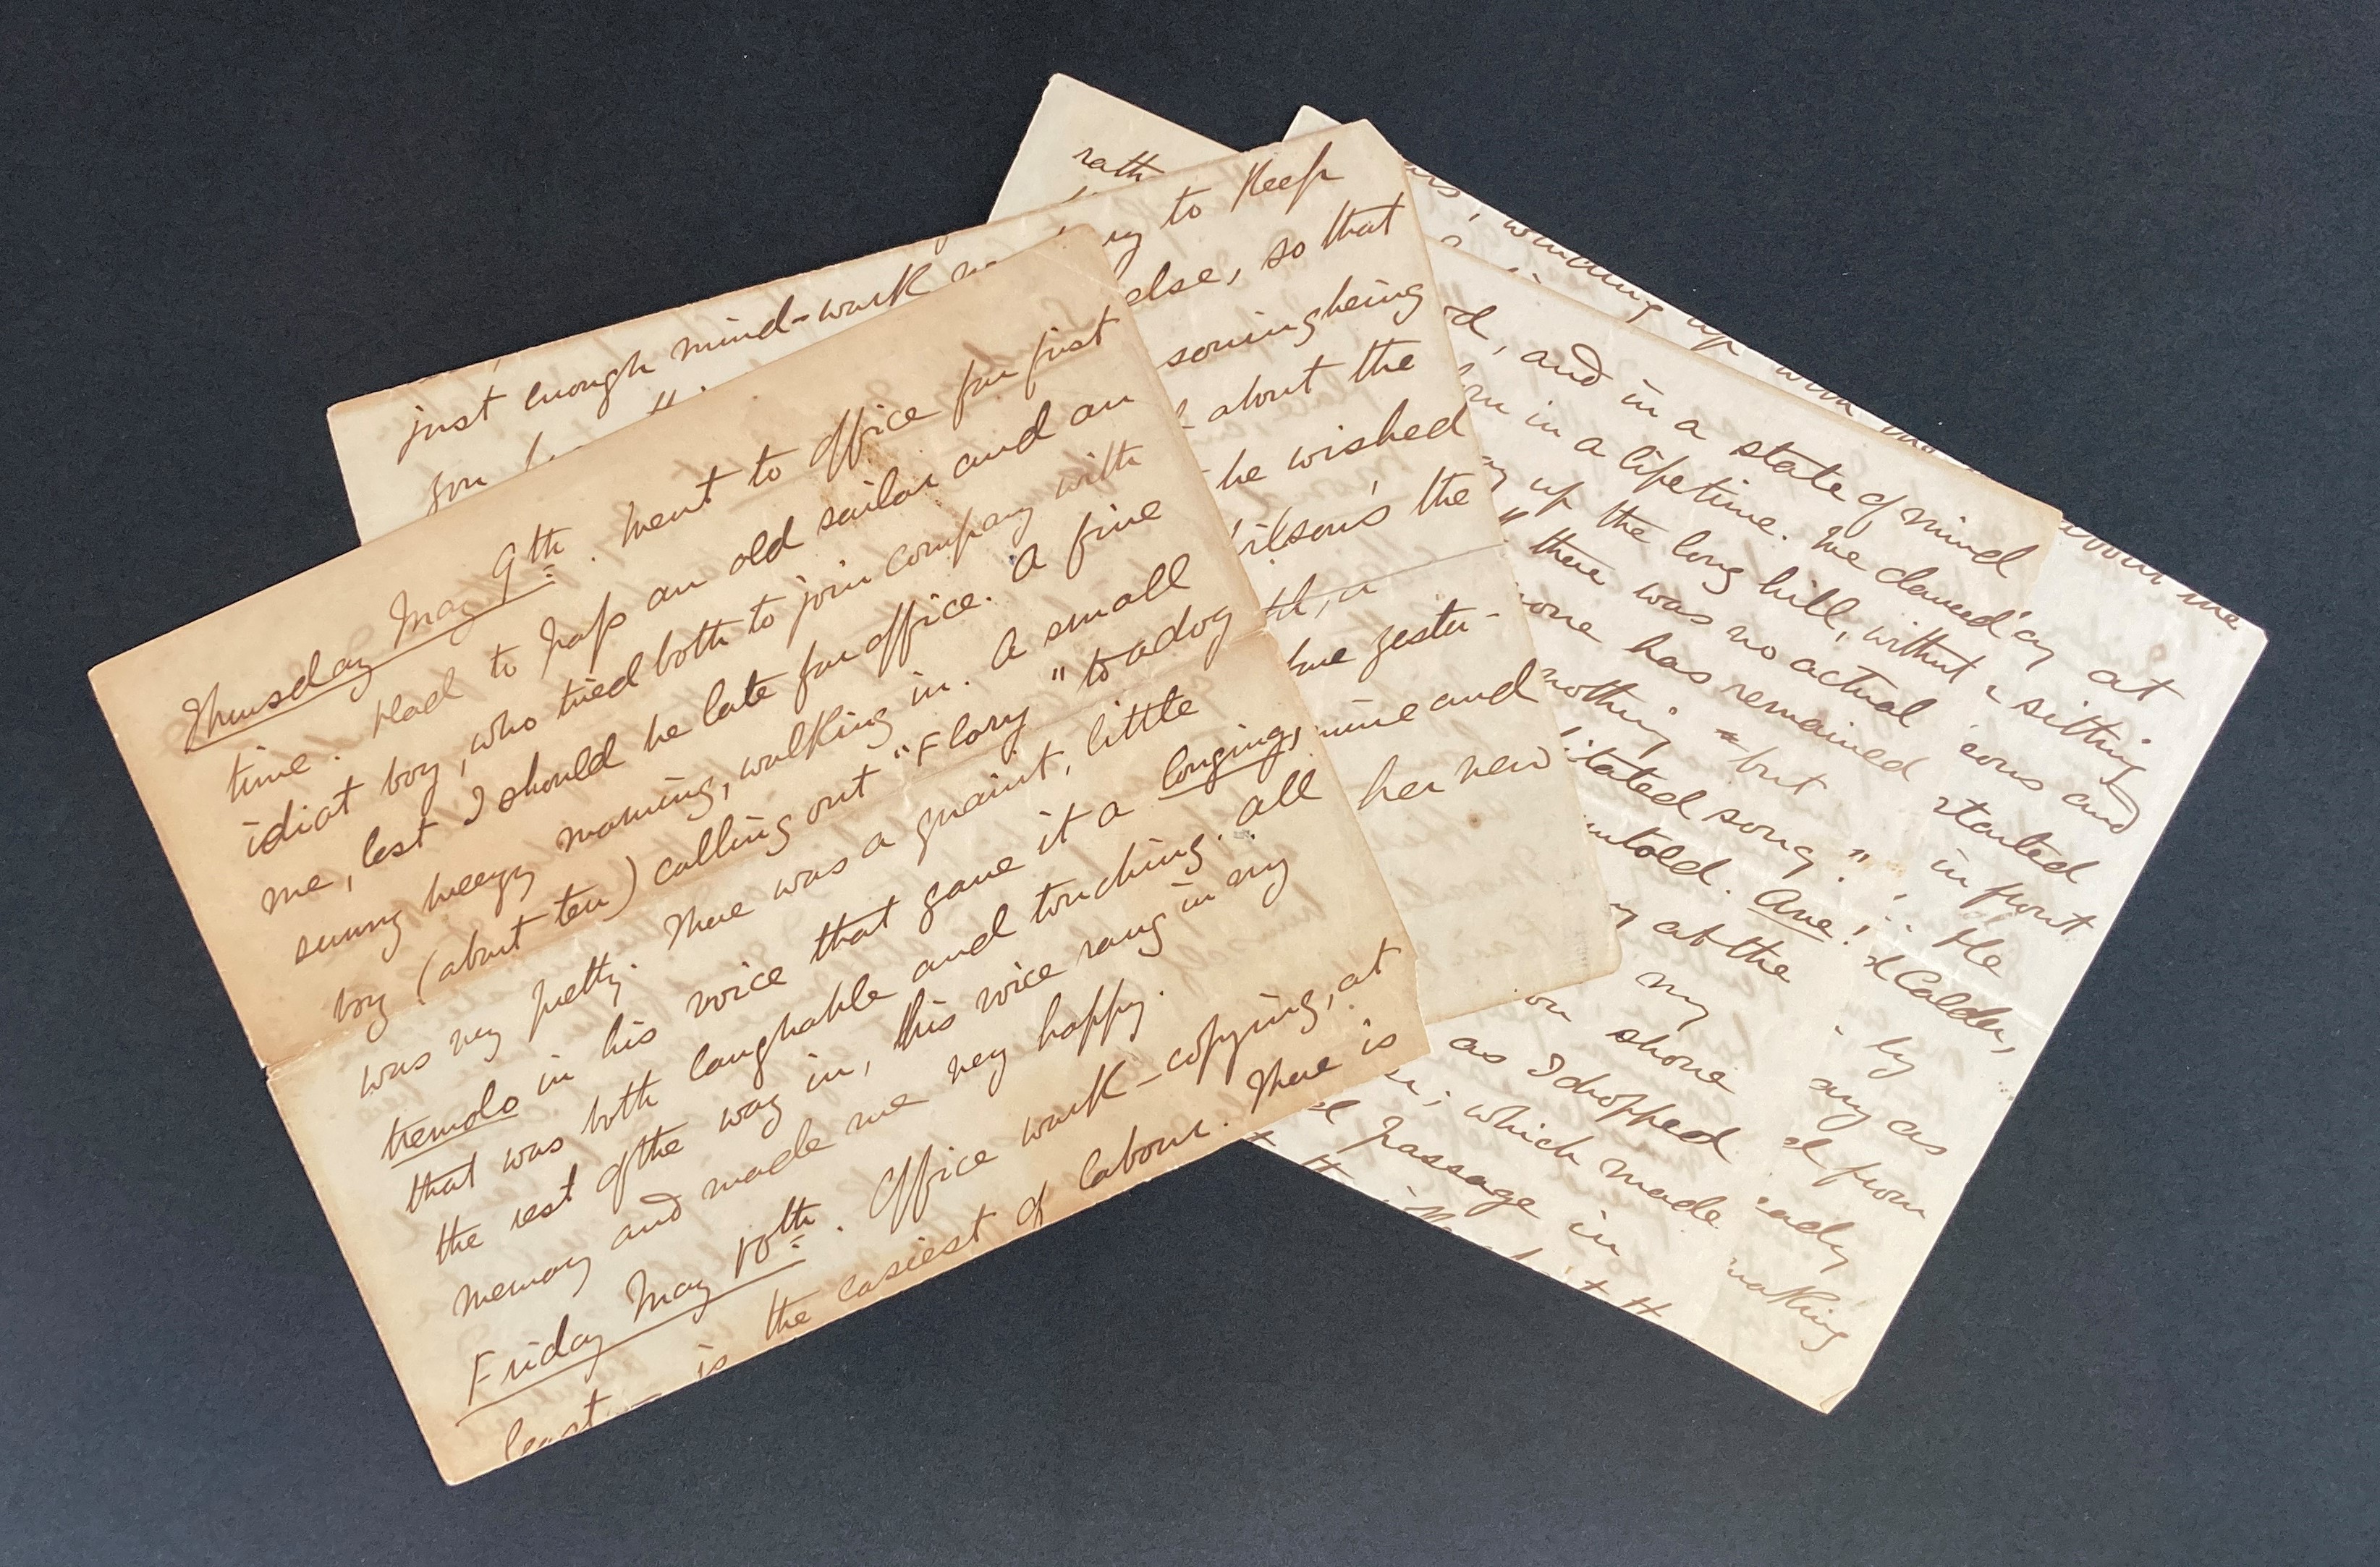 Thursday May 9th. Went to office for first
time. Had to pass an old sailor and an
idiot boy, who tried both to join company with
me, lest I should be late for office. A fine
sunny breezy morning, walking in. A small
boy (about ten) calling out "Flory" to a dog
was very pretty. There was a quaint, little
tremolo in his voice that gave it a longing,
that was both laughable and touching. All
the rest of the way in, his voice rang in my
memory and made me very happy.
Friday May 10th. Office work – copying, at
least – is the easiest of labour. There is
just enough mind-work
to keep
you
else, so that
soning being
about the
he wished
the
yester-
mine and
her new
rath
winding up with
about me
and in a state of mind
in a lifetime. We danced at
up the long hill, without sitting
" there was no actual
one has remained
nothing but
itated song."
untold. Ave!
at the
my
shone
as I dropped
; which made
passage in
at
sitting
and
started
in front
He
Calder,
by
any as
from
making